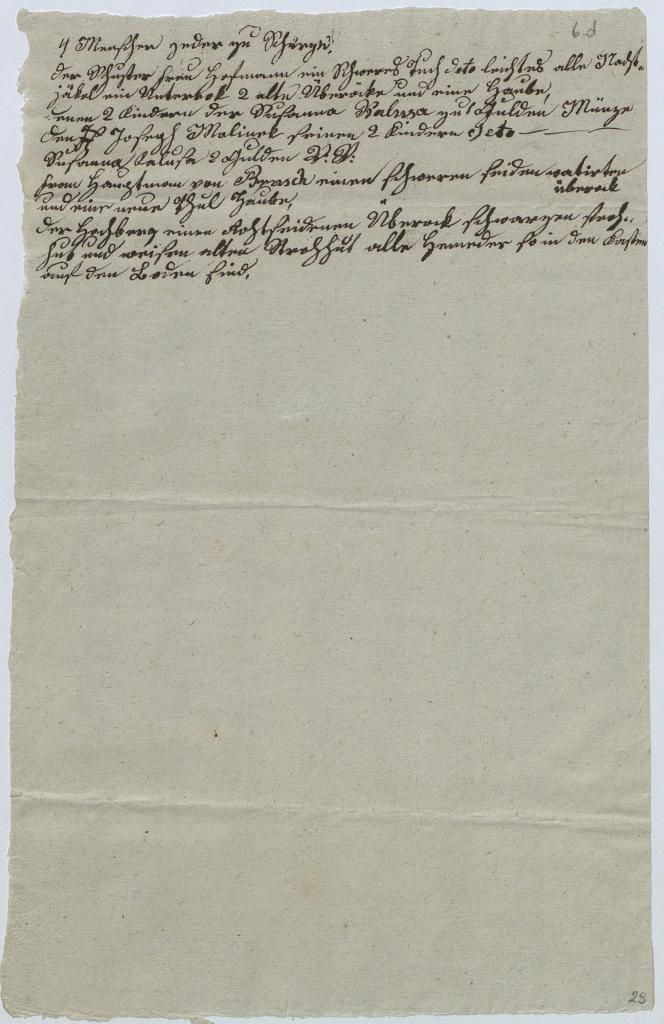 6 d
4 Menscher jeder zu Schürzn.
der Schuster frau Hofmann ein Schweres Tuch deto leichtes alle Nacht-
jäkel ein Unterrok 2 alte Überröcke und eine Haube,
denen 2 Kindern der Susanna Kalusa zu Gulden Münze
den Joseph Malinek seinen 2 Kindern deto
Susanna Kalusa 2 Gulden
Fram Hauptman von Bensch einen schweren seiden watirten
überrok
und eine neue Thul Haube,
der Hochberg einen Rohtseidenen Überrock schwarzen stroh-
hut und weisen alten Strohhut alle Hemeder so in den Kasten
auf den Boden sind.
28